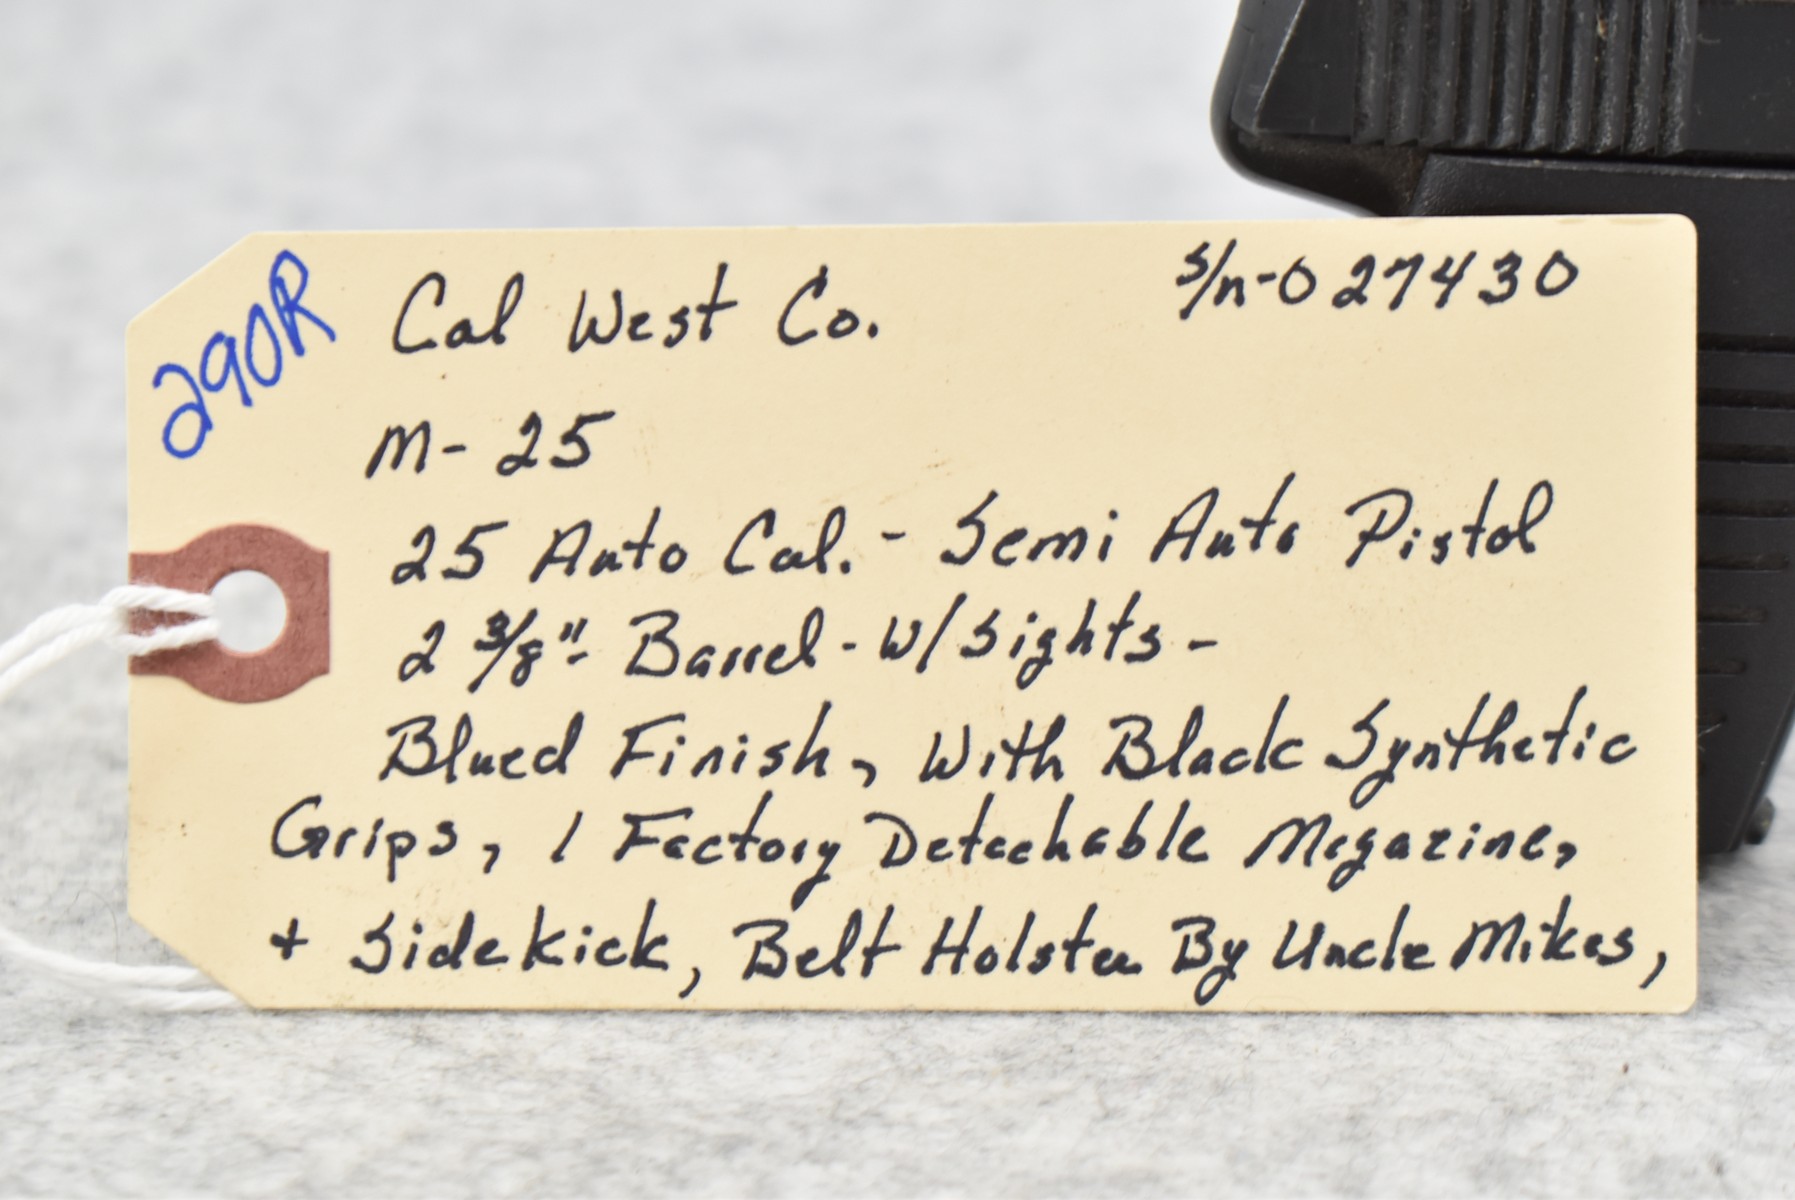 290R
Cal West Co. S/n-027430
M-25
25 Auto Cal. - Semi Auto Pistol
2 3/8"- Barrel - W/Sights -
Blued Finish, With Black Synthetic
Grips, 1 Factory Detachable Magazine,
+ Sidekick, Belt Holster By Uncle Mikes,